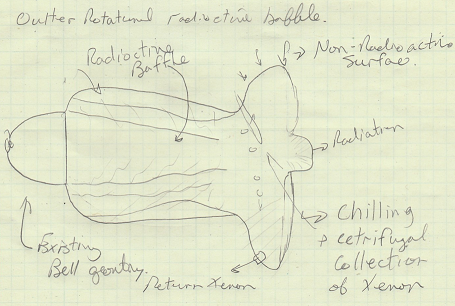 Outter Rotational radioctive baffle.
Radioctive
Baffle
Non-Radioactive
Surface.
Radiation
Chilling
+ cetrifugal
Collection
of Xenon
Existing
Bell geomtry.
Return Xenon